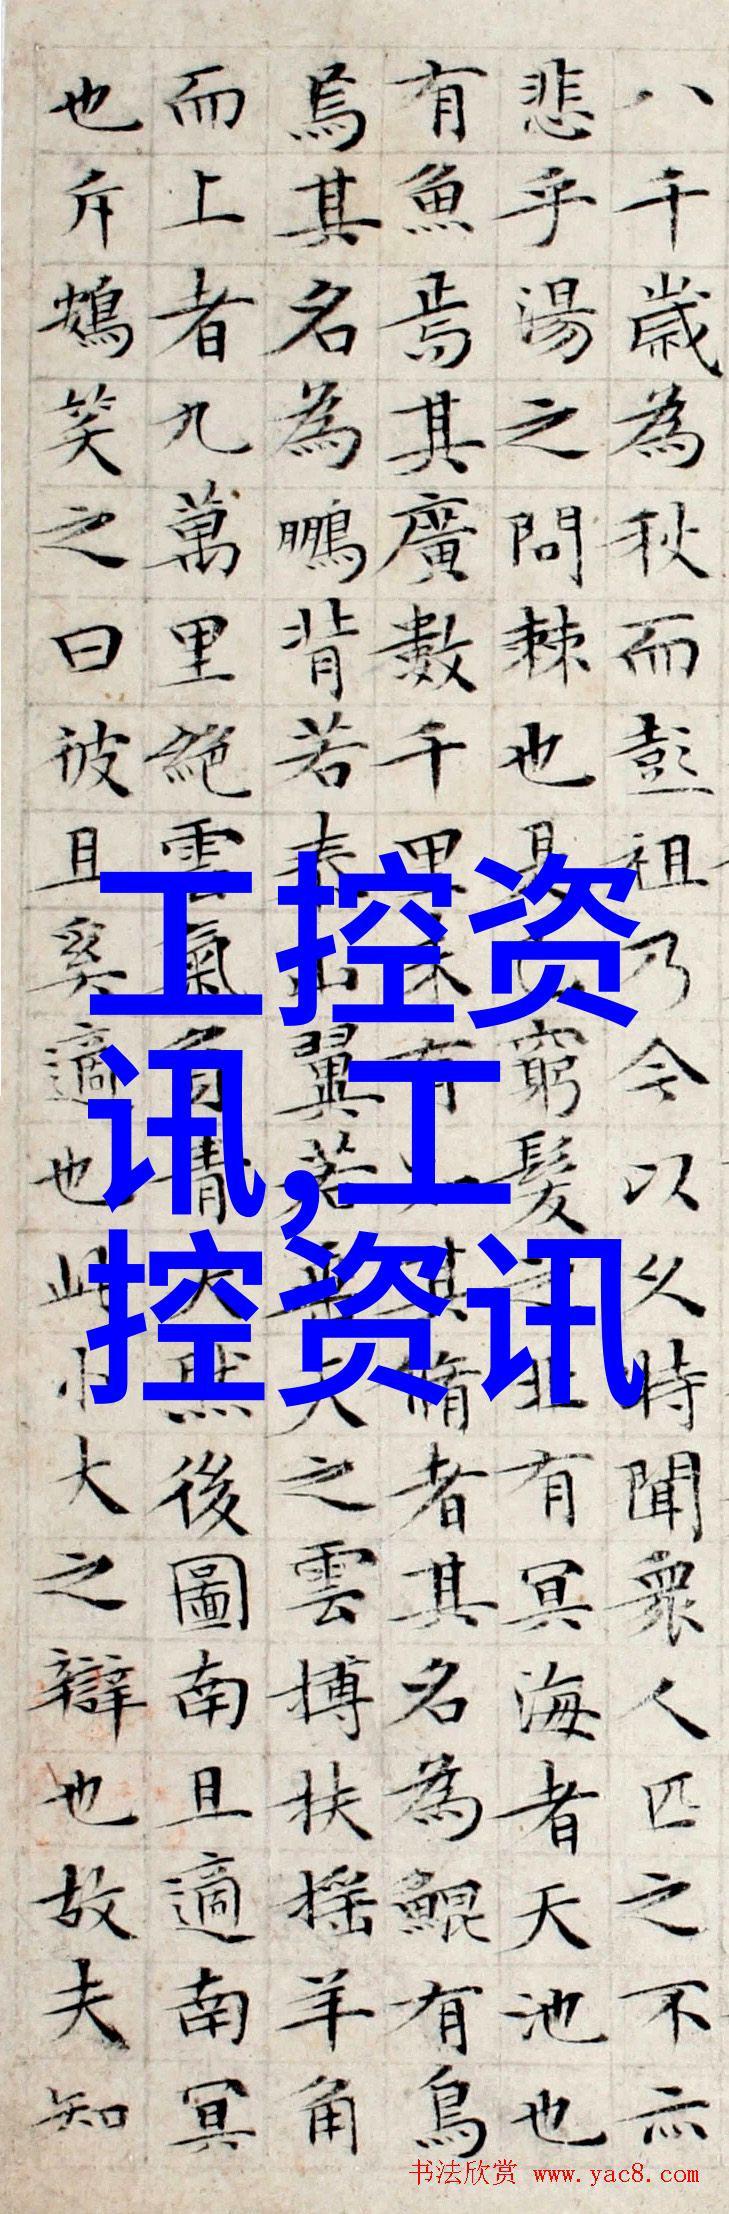 八千歲為秋而彭祖乃今以久時聞衆人匹之不亦
悲乎湯之問棘也是已窮髮之北有冥海者天池也
有魚焉其廣數千里未有其脩者其名為鯤有鳥
焉其名為鵬背若泰山翼若垂天之雲搏扶搖羊角
而上者九萬里絕雲氣負青天然後圖南且適南冥
也斥鴳笑之曰彼且奚適也此小大之辯也故夫知
工控资
讯,工
控资讯
书法欣赏 www.yac8.com